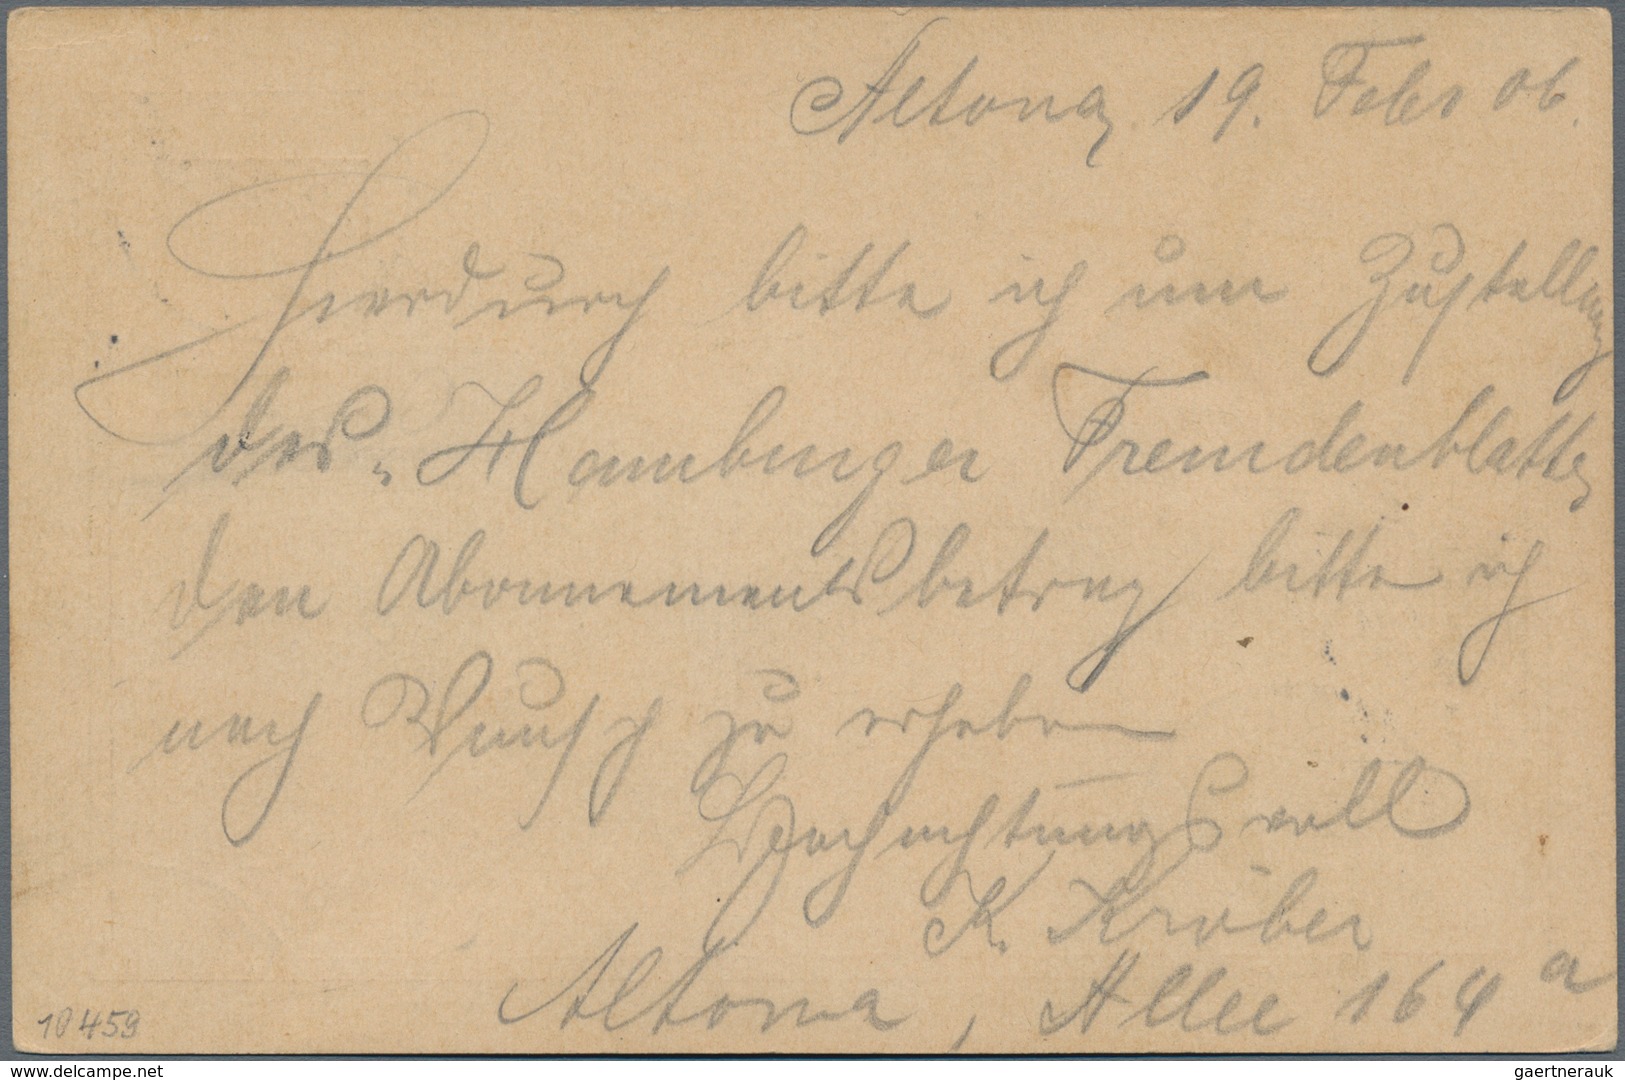 Altona, 19. Febr 06.
Hierdurch bitte ich um Zustellung
des "Hamburger Fremdenblattes
den Abonnementsbetrag bitte ich
nach Wunsch zu erheben
Hochachtungsvoll
K. Kröber
Altona, Allee 164 a
10459
delcampe.net
gaertnerauk